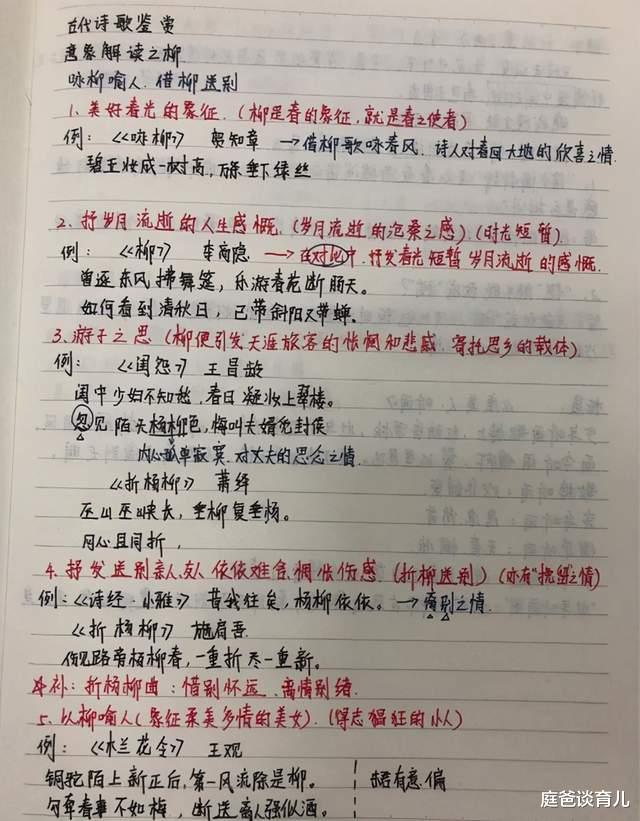 古代诗歌鉴赏
意象解读之柳
咏柳喻人.借柳送别
1、美好春光的象征.(柳是春的象征,就是春之使者)
例:《咏柳》 贺知章 →借柳歌咏春风.诗人对春回大地的欣喜之情.
碧玉妆成一树高,万条垂下绿丝
2.抒岁月流逝的人生感慨.(岁月流逝的沧桑之感)(时光短暂)
例:《柳》 李商隐 →在对比中.抒发春光短暂 岁月流逝的感慨.
曾逐东风拂舞筵,乐游春苑断肠天。
如何看到清秋日,已带斜阳又带蝉。
3.游子之思(柳便引发天涯旅客的怅惘和悲戚.寄托思乡的载体)
例:《闺怨》王昌龄
闺中少妇不知愁,春日凝妆上翠楼。
忽见陌头杨柳色,悔叫夫婿觅封侯
内心孤单寂寞.对丈夫的思念之情.
《折杨柳》 萧绎
巫山巫峡长,垂柳复垂杨。
同心且同折,
4.抒发送别亲人.友人依依难舍.惆怅伤感(折柳送别)(亦有"挽留之情)
例:《诗经·小雅》昔我往矣,杨柳依依。→惜别之情.
《折杨柳》施肩吾
伤见路旁杨柳春,一重折尽一重新。
补:折杨柳曲:惜别怀远.离情别绪.
5.以柳喻人(象征柔美多情的美女).(得志猖狂的小人)
例:《木兰花令》王观
铜驼陌上新正后,第一风流除是柳。
勾牵春事不如梅,断送离人强似酒。
有意偏
庭爸谈育儿